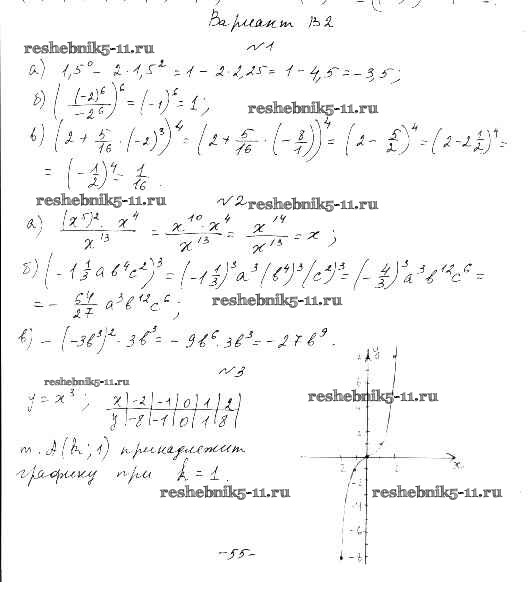 Вариант В2
reshebnik5-11.ru
№1
а) 1,5⁰ - 2·1,5² = 1 - 2·2,25 = 1 - 4,5 = -3,5;
б) ((-2)⁶/-2⁶)⁶ = (-1)⁶ = 1;
reshebnik5-11.ru
в) (2 + 5/16 · (-2)³)⁴ = (2 + 5/16 · (-8/1))⁴ = (2 - 5/2)⁴ = (2 - 2 1/2)⁴ =
= (-1/2)⁴ = 1/16.
reshebnik5-11.ru
№2
reshebnik5-11.ru
а) (x⁵)²·x⁴/x¹³ = x¹⁰·x⁴/x¹³ = x¹⁴/x¹³ = x;
б) (-1 1/3 ab⁴c²)³ = (-1 1/3)³a³(b⁴)³(c²)³ = (-4/3)³a³b¹²c⁶ =
= - 64/27 a³b¹²c⁶;
reshebnik5-11.ru
в) -(-3b³)²·3b³ = -9b⁶·3b³ = -27b⁹.
№3
reshebnik5-11.ru
y = x³;
x|-2|-1|0|1|2
y|-8|-1|0|1|8
reshebnik5-11.ru
т. А(k;1) принадлежит
графику при k = 1.
reshebnik5-11.ru
reshebnik5-11.ru
y
x
-55-